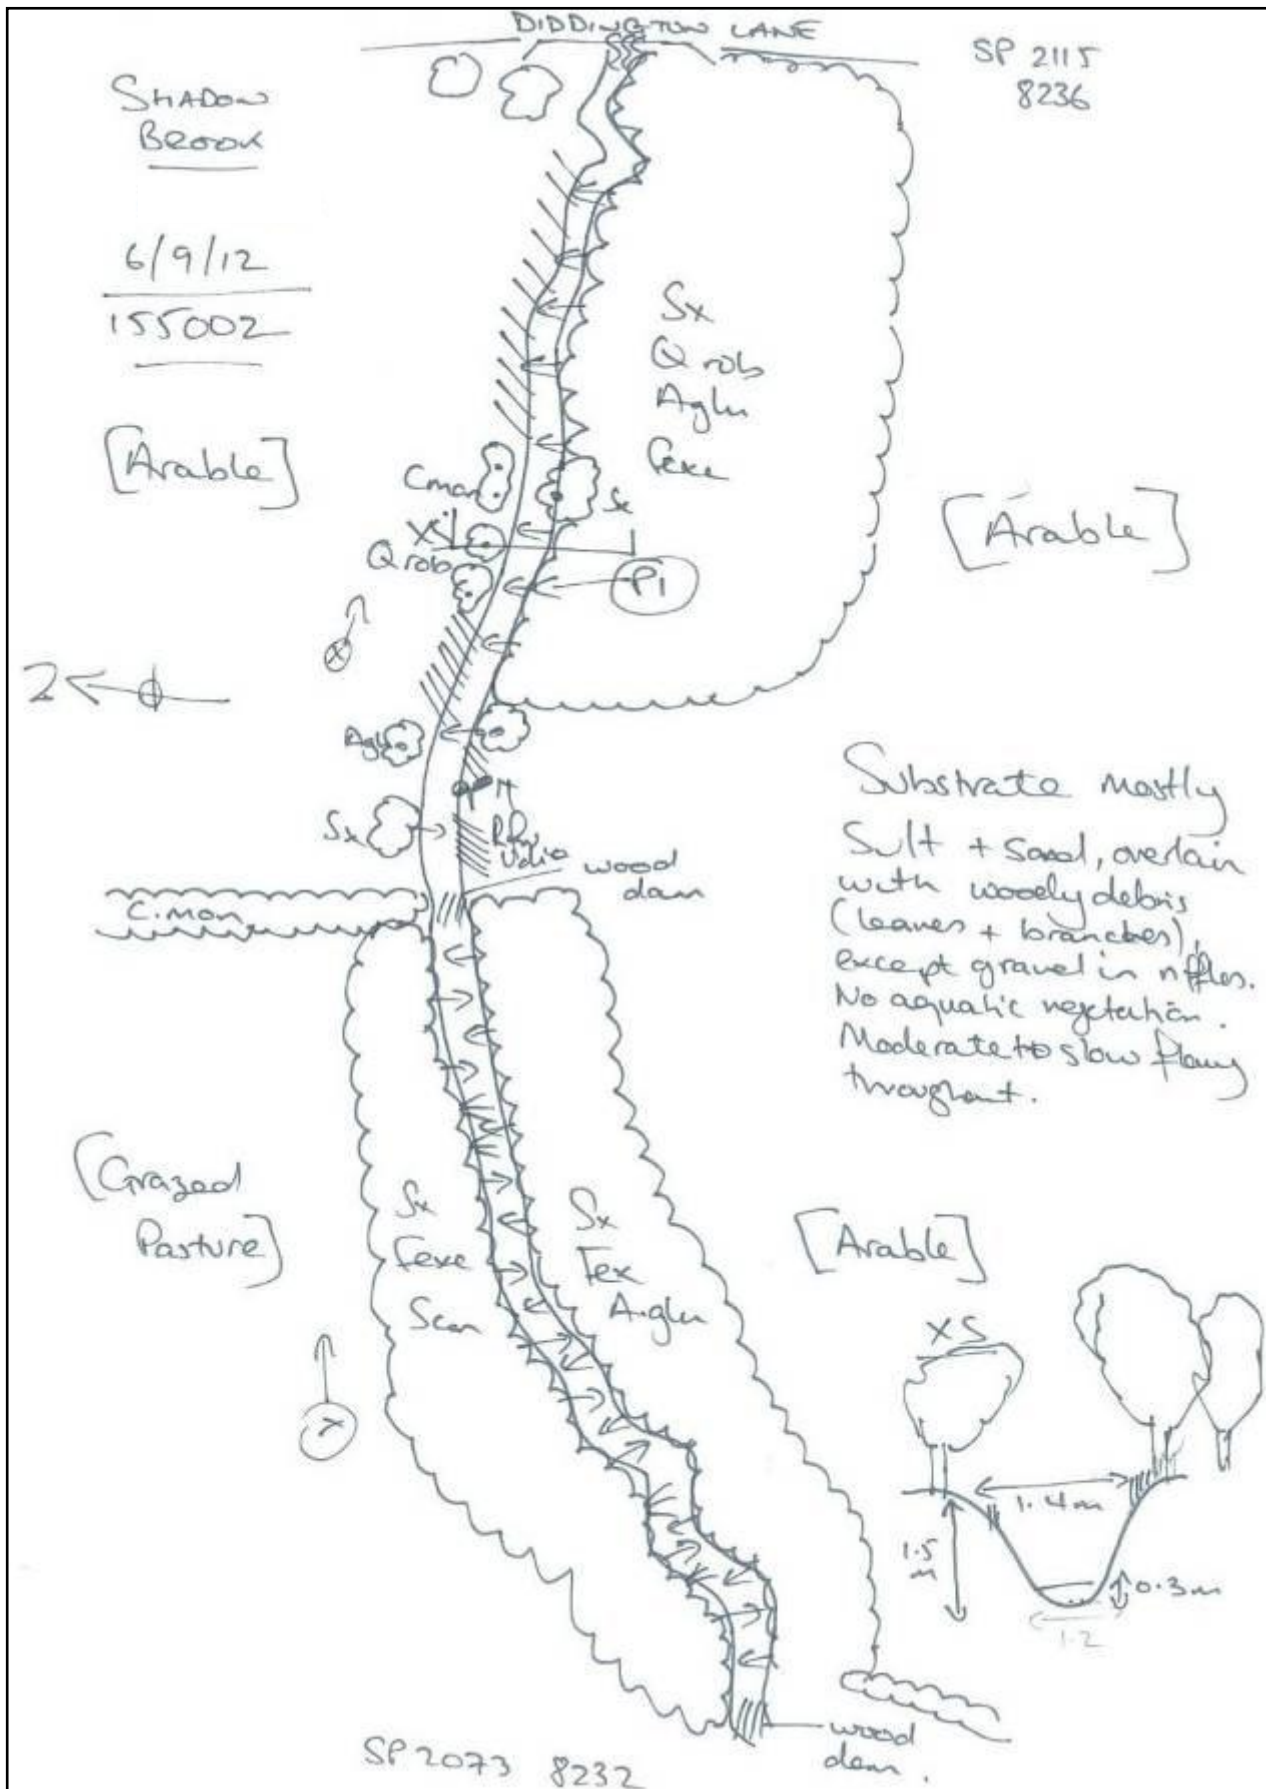 DIDDINGTON LANE
SP 2115
8236
SHADOW
BROOK
6/9/12
155002
[Arable]
Sx
Q rob
Aglu
Fexc
Cmon
Sx
XS
Q rob
P1
[Arable]
X
Z
Aglu
Sx
Udio
wood
dam
C.mon
Substrate mostly
Silt + Sand, overlain
with woody debris
(leaves + branches),
except gravel in riffles.
No aquatic vegetation.
Moderate to slow flow
throughout.
[Grazed
Pasture]
Sx
Fexc
Sx
Fex
A.glu
[Arable]
XS
1.4m
1.5
m
0.3m
1.2
wood
dam.
SP 2073 8232